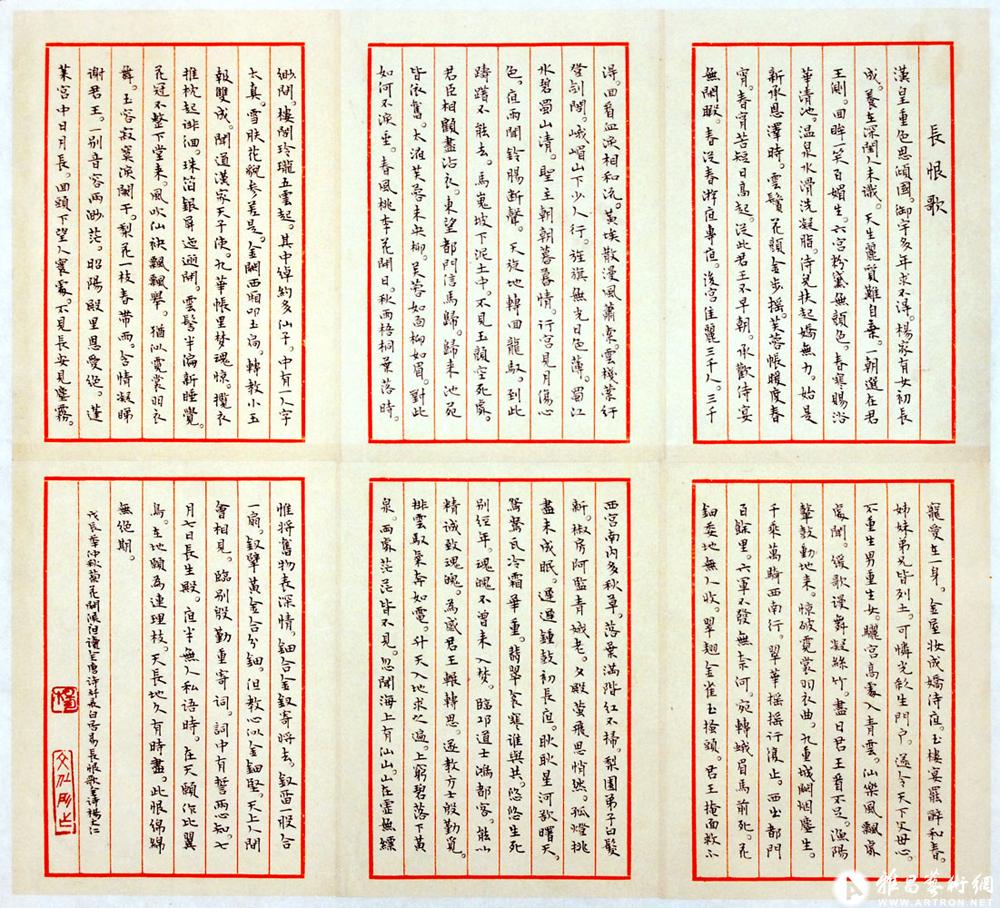 長恨歌
漢皇重色思傾國。御宇多年求不得。楊家有女初長
成。養在深閨人未識。天生麗質難自棄。一朝選在君
王側。回眸一笑百媚生。六宮粉黛無顏色。春寒賜浴
華清池。温泉水滑洗凝脂。侍兒扶起嬌無力。始是
新承恩澤時。雲鬢花顏金步搖。芙蓉帳暖度春
宵。春宵苦短日高起。從此君王不早朝。承歡侍宴
無閑暇。春從春游夜專夜。後宮佳麗三千人。三千
寵愛在一身。金屋妝成嬌侍夜。玉樓宴罷醉和春。
姊妹弟兄皆列土。可憐光彩生門户。遂令天下父母心。
不重生男重生女。驪宮高處入青雲。仙樂風飄處
處聞。緩歌謾舞凝絲竹。盡日君王看不足。漁陽
鼙鼓動地来。惊破霓裳羽衣曲。九重城闕烟塵生。
千乘萬騎西南行。翠華摇摇行復止。西出都門
百餘里。六軍不發無奈何。宛轉蛾眉馬前死。花
鈿委地無人收。翠翹金雀玉搔頭。君王掩面救不
得。回看血淚相和流。黃埃散漫風蕭索。雲棧縈紆
登劍閣。峨嵋山下少人行。旌旗無光日色薄。蜀江
水碧蜀山清。聖主朝朝暮暮情。行宮見月傷心
色。夜雨聞鈴腸斷聲。天旋地轉回龍馭。到此
躊躇不能去。馬嵬坡下泥土中。不見玉顏空死處。
君臣相顧盡沾衣。東望都門信馬歸。歸来池苑
皆依舊。太液芙蓉未央柳。芙蓉如面柳如眉。對此
如何不淚垂。春風桃李花開日。秋雨梧桐葉落時。
西宮南内多秋草。落葉满階紅不掃。梨園弟子白髮
新。椒房阿監青娥老。夕殿螢飛思悄然。孤燈挑
盡未成眠。遲遲鍾鼓初長夜。耿耿星河欲曙天。
鴛鴦瓦冷霜華重。翡翠衾寒誰與共。悠悠生死
別經年。魂魄不曾来入梦。臨邛道士鴻都客。能以
精诚致魂魄。為感君王輾轉思。遂教方士殷勤覓。
排雲馭氣奔如電。升天入地求之遍。上窮碧落下黄
泉。两處茫茫皆不見。忽聞海上有仙山。山在虛無縹
緲間。樓閣玲瓏五雲起。其中綽約多仙子。中有一人字
太真。雪肤花貌参差是。金闕西廂叩玉扃。轉教小玉
報雙成。聞道漢家天子使。九華帳里梦魂惊。攬衣
推枕起徘徊。珠箔銀屏迤邐開。雲髻半偏新睡覺。
花冠不整下堂来。風吹仙袂飄飄舉。猶似霓裳羽衣
舞。玉容寂寞淚闌干。梨花一枝春带雨。含情凝睇
谢君王。一别音容两渺茫。昭陽殿里恩愛绝。蓬
莱宮中日月長。回頭下望人寰處。不見長安見塵霧。
惟將舊物表深情。鈿合金釵寄將去。釵留一股合
一扇。釵擘黄金合分鈿。但教心似金鈿堅。天上人間
會相見。臨别殷勤重寄詞。詞中有誓两心知。七
月七日長生殿。夜半無人私语時。在天願作比翼
鳥。在地願為連理枝。天長地久有時盡。此恨绵绵
無绝期。
雅昌藝術網
WWW.ARTRON.NET